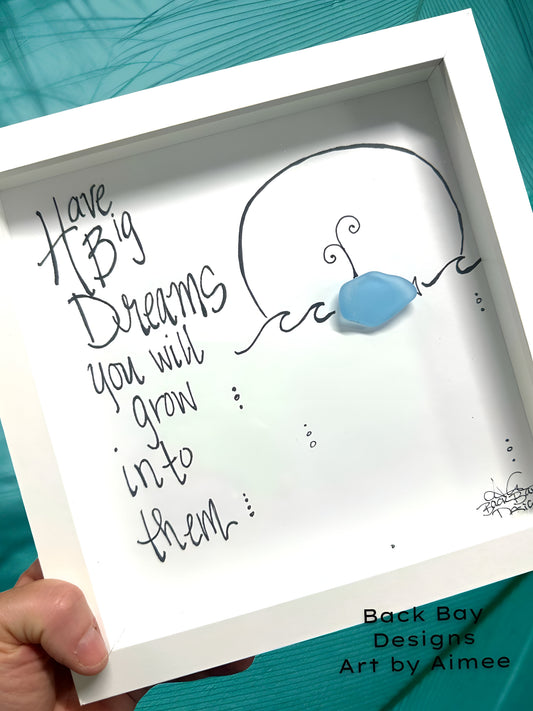 Have
Big
Dreams
you will
grow
into
them
Back Bay
Designs
Art by Aimee